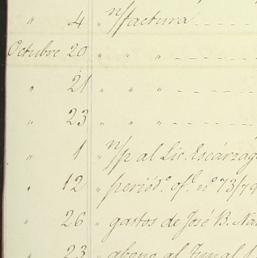 " 4 " n/factura
Octubre 20 " " "
" 21 " " "
" 23 " " "
" 1 " n/p al Lic. Escárzag
" 12 " periód.s of. nº 73/79
" 26 " gastos de José B. Na
" 23 " abono al